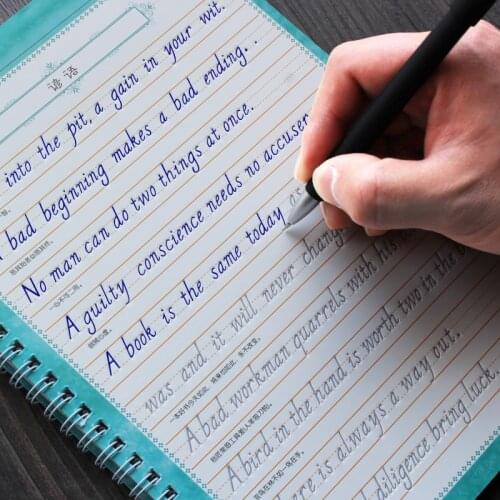 谚语
into the pit, a gain in your wit.
bad beginning makes a bad ending.
No man can do two things at once.
一心不可二用。
A guilty conscience needs no accuser
A book is the same today
was and it will never chang
A bad workman quarrels with his
A bird in the hand is worth two in the
is always a way out.
diligence bring luck.